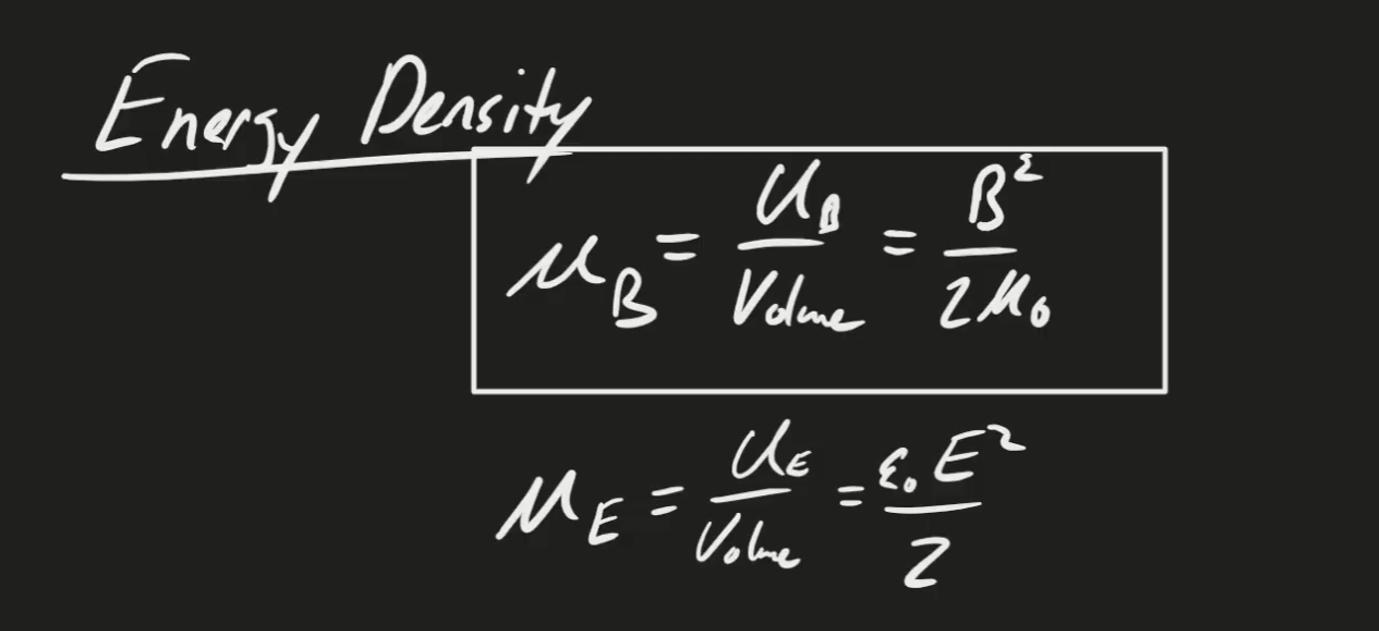 Energy Density
μ_B = U_B / Volume = B² / 2μ₀
μ_E = U_E / Volume = ε₀ E² / 2